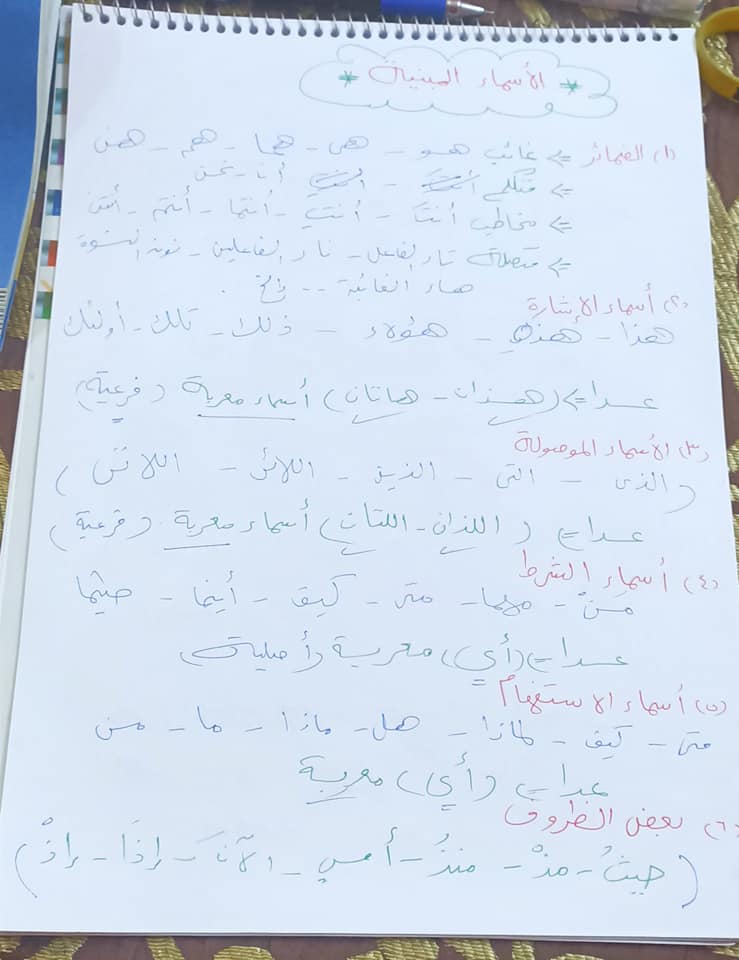 * الأسماء المبنية *
(١) الضمائر => غائب هو - هى - هما - هم - هن
=> متكلم أنا - نحن
=> مخاطب أنتَ - أنتِ - أنتما - أنتم - أنتن
=> متصلة تاء الفاعل - نا الفاعلين - نون النسوة
هاء الغائبة -- إلخ .
(٢) أسماء الإشارة
هذا - هذهِ - هؤلاء - ذلك - تلك - أولئك
عدا => (هذان - هاتان) أسماء معربة (فرعية)
(٣) الأسماء الموصولة
(الذى - التى - الذين - اللائى - اللاتى)
عدا => (اللذان - اللتان) أسماء معربة (فرعية)
(٤) أسماء الشرط
مَنْ - مهما - متى - كيف - أينما - حيثما
عدا => (أي) معربة (أصلية)
(٥) أسماء الاستفهام
متى - كيف - لماذا - هل - ماذا - ما - من
عدا => (أي) معربة
(٦) بعض الظروف
(حيثُ - مذْ - منذُ - أمسِ - الآنَ - إذَا - إذْ)